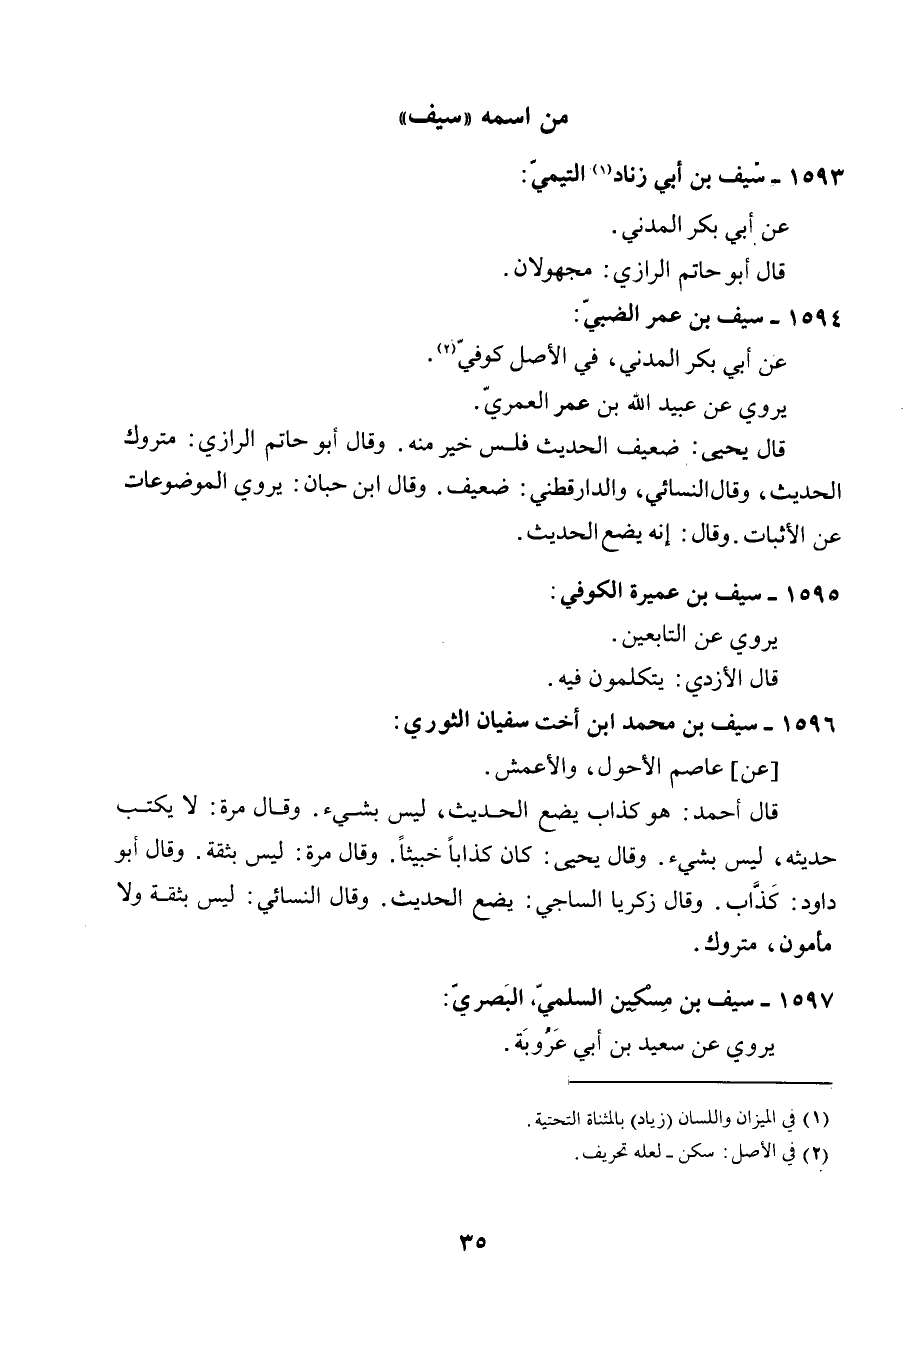 من اسمه «سيف»
١٥٩٣ ـ سَيف بن أبي زناد(١) التيميّ:
عن أبي بكر المدني.
قال أبو حاتم الرازي: مجهولان.
١٥٩٤ ـ سيف بن عمر الضبيّ:
عن أبي بكر المدني، في الأصل كوفيّ(٢).
يروي عن عبيد الله بن عمر العمريّ.
قال يحيى: ضعيف الحديث فلس خير منه. وقال أبو حاتم الرازي: متروك
الحديث، وقال النسائي، والدارقطني: ضعيف. وقال ابن حبان: يروي الموضوعات
عن الأثبات. وقال: إنه يضع الحديث.
١٥٩٥ ـ سيف بن عميرة الكوفي:
يروي عن التابعين.
قال الأزدي: يتكلمون فيه.
١٥٩٦ ـ سيف بن محمد ابن أخت سفيان الثوري:
[عن] عاصم الأحول، والأعمش.
قال أحمد: هو كذاب يضع الحديث، ليس بشيء. وقال مرة: لا يكتب
حديثه، ليس بشيء. وقال يحيى: كان كذاباً خبيثاً. وقال مرة: ليس بثقة. وقال أبو
داود: كَذَّاب. وقال زكريا الساجي: يضع الحديث. وقال النسائي: ليس بثقة ولا
مأمون، متروك.
١٥٩٧ ـ سيف بن مِسْكِين السلميّ، البَصريّ:
يروي عن سعيد بن أبي عَرُوبَة.
(١) في الميزان واللسان (زياد) بالمثناة التحتية.
(٢) في الأصل: سكن ـ لعله تحريف.
٣٥